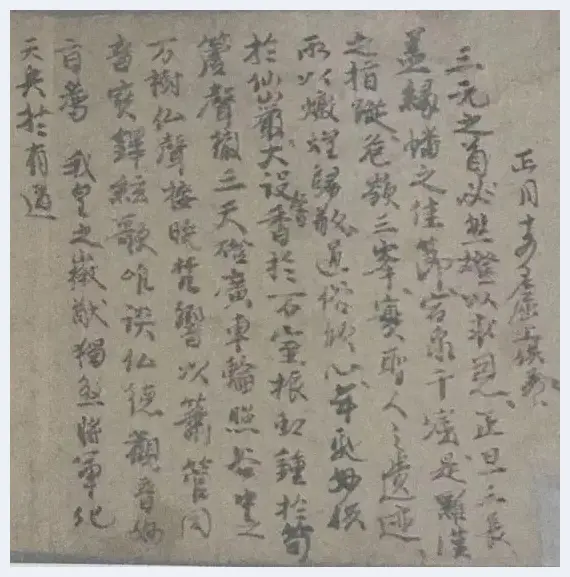 正月十五日窟上供養
三元之首必然燈以求恩正旦三長
蓋緣幡之佳節宕泉千窟是羅漢
之指蹤危嶺三峯實聖人之遺迹
所以燉煌歸敬道俗傾心年馳妙供
於仙巖大設馨香於万室振虹鍾於笱
簷聲徹三天燈廣車輪照谷中之
万樹仏聲接曉梵響以簫管同
音寶鐸絃歌唯談仏德觀音妙
旨薦 我皇之徽猷獨煞將軍化
天兵於有道